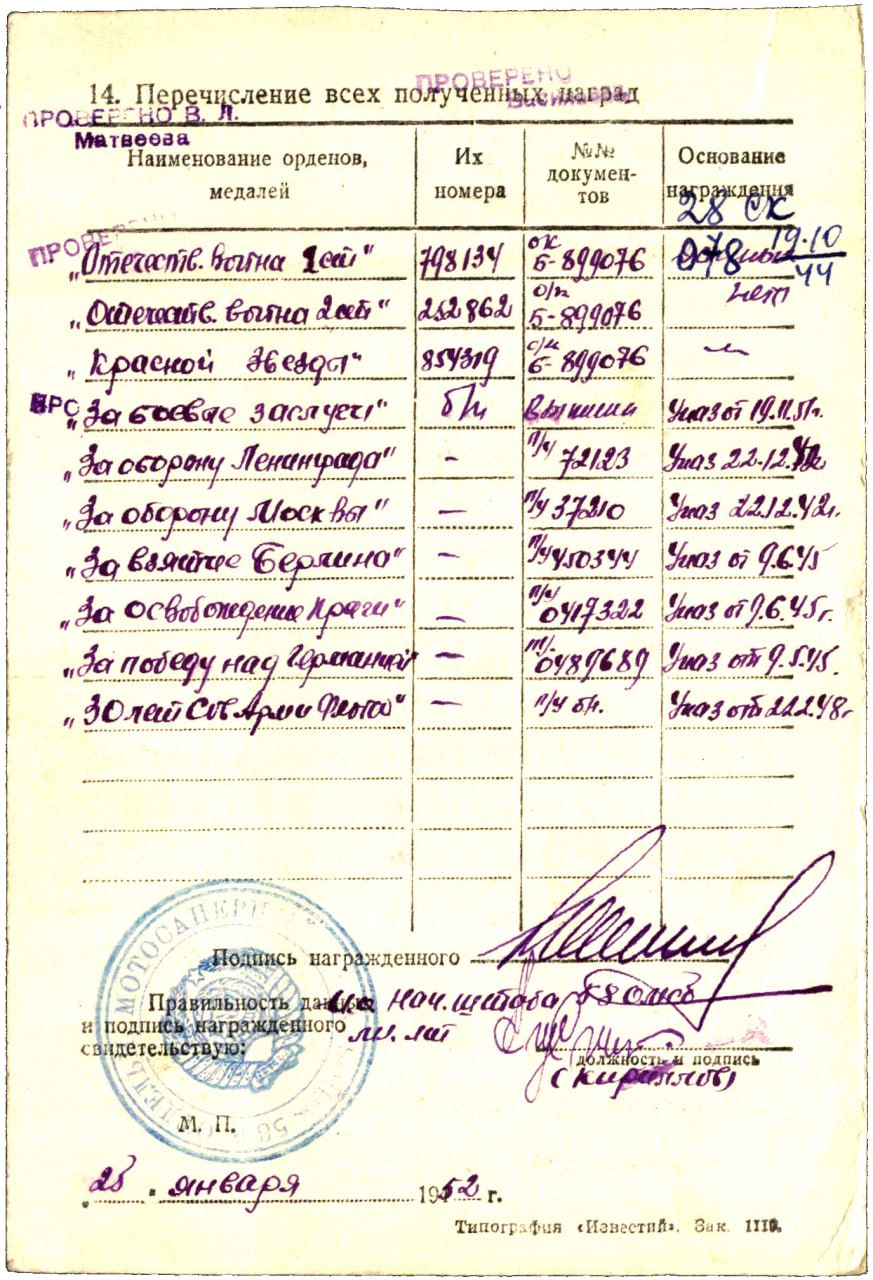 ПРОВЕРЕНО
14. Перечисление всех полученных наград
ПРОВЕРЕНО В. Л.
Матвеева
Наименование орденов, медалей Их номера №№ документов Основание награждения
28 СК
ПРОВЕРЕНО
„Отечеств. война 1 ст" 798134 ок Б-899076 078 19.10/44
„Отечеств. война 2 ст" 252862 о/к Б-899076 нет
„Красной Звезды" 854319 о/к Б-899076 —
ПРО „За боевые заслуги" б/н Указ от 19.11.51г.
„За оборону Ленинграда" - п/у 72123 Указ 22.12.42г
„За оборону Москвы" — п/у 37210 Указ 22.12.42г.
„За взятие Берлина" — п/у 450344 Указ от 9.6.45
„За освобождение Праги" — п/у 0417322 Указ от 9.6.45г.
„За победу над Германией" — п/у. 0489689 Указ от 9.5.45.
„30 лет Сов Арми Флота" — п/у бн. Указ от 22.2.48г
МОТОСАПЕРН
58
Подпись награжденного
Правильность данных И.о. нач. штаба 58 омсб
и подпись награженного
свидетельствую:
должность и подпись
(Кириллов)
М. П.
„25" января 1952 г.
Типография «Известий». Зак. 1110.